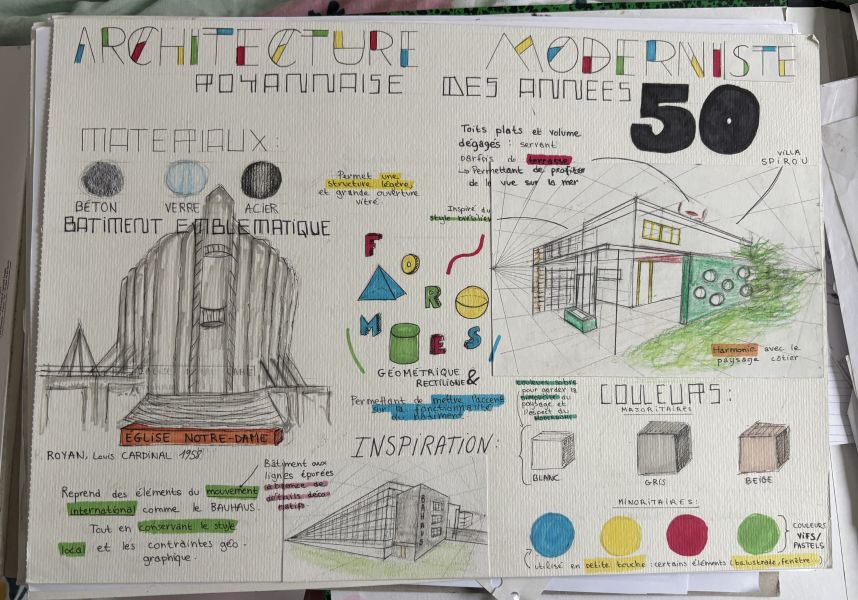 ARCHITECTURE MODERNISTE
ROYANNAISE DES ANNEES 50
MATERIAUX:
BÉTON VERRE ACIER
BATIMENT EMBLEMATIQUE
EGLISE NOTRE-DAME
ROYAN, Louis CARDINAL 1958
Reprend des éléments du mouvement
international comme le BAUHAUS.
Tout en conservant le style
local et les contraintes géo-
graphique.
Permet une
structure légère,
et grande ouverture
vitré.
Toits plats et volume
dégagés : servant
parfois de terrasse
→ Permettant de profiter
de la vue sur la mer
Inspiré du
style
VILLA
SPIROU
Harmonie avec le
paysage cotier
FORMES
GÉOMÉTRIQUE
RECTILIGNE &
Permettant de mettre l'accent
sur la fonctionnalité
du bâtiment
INSPIRATION:
Bâtiment aux
lignes épurées
absence de
détails déco
ratifs
BAUHAUS
couleurs sobre
pour garder la
simplicité du
paysage et
l'aspect du
COULEURS:
MAJORITAIRES
BLANC GRIS BEIGE
MINORITAIRES:
COULEURS
VIFS/
PASTELS
utilisé en petite touche : certains éléments (balustrade, fenêtre...)